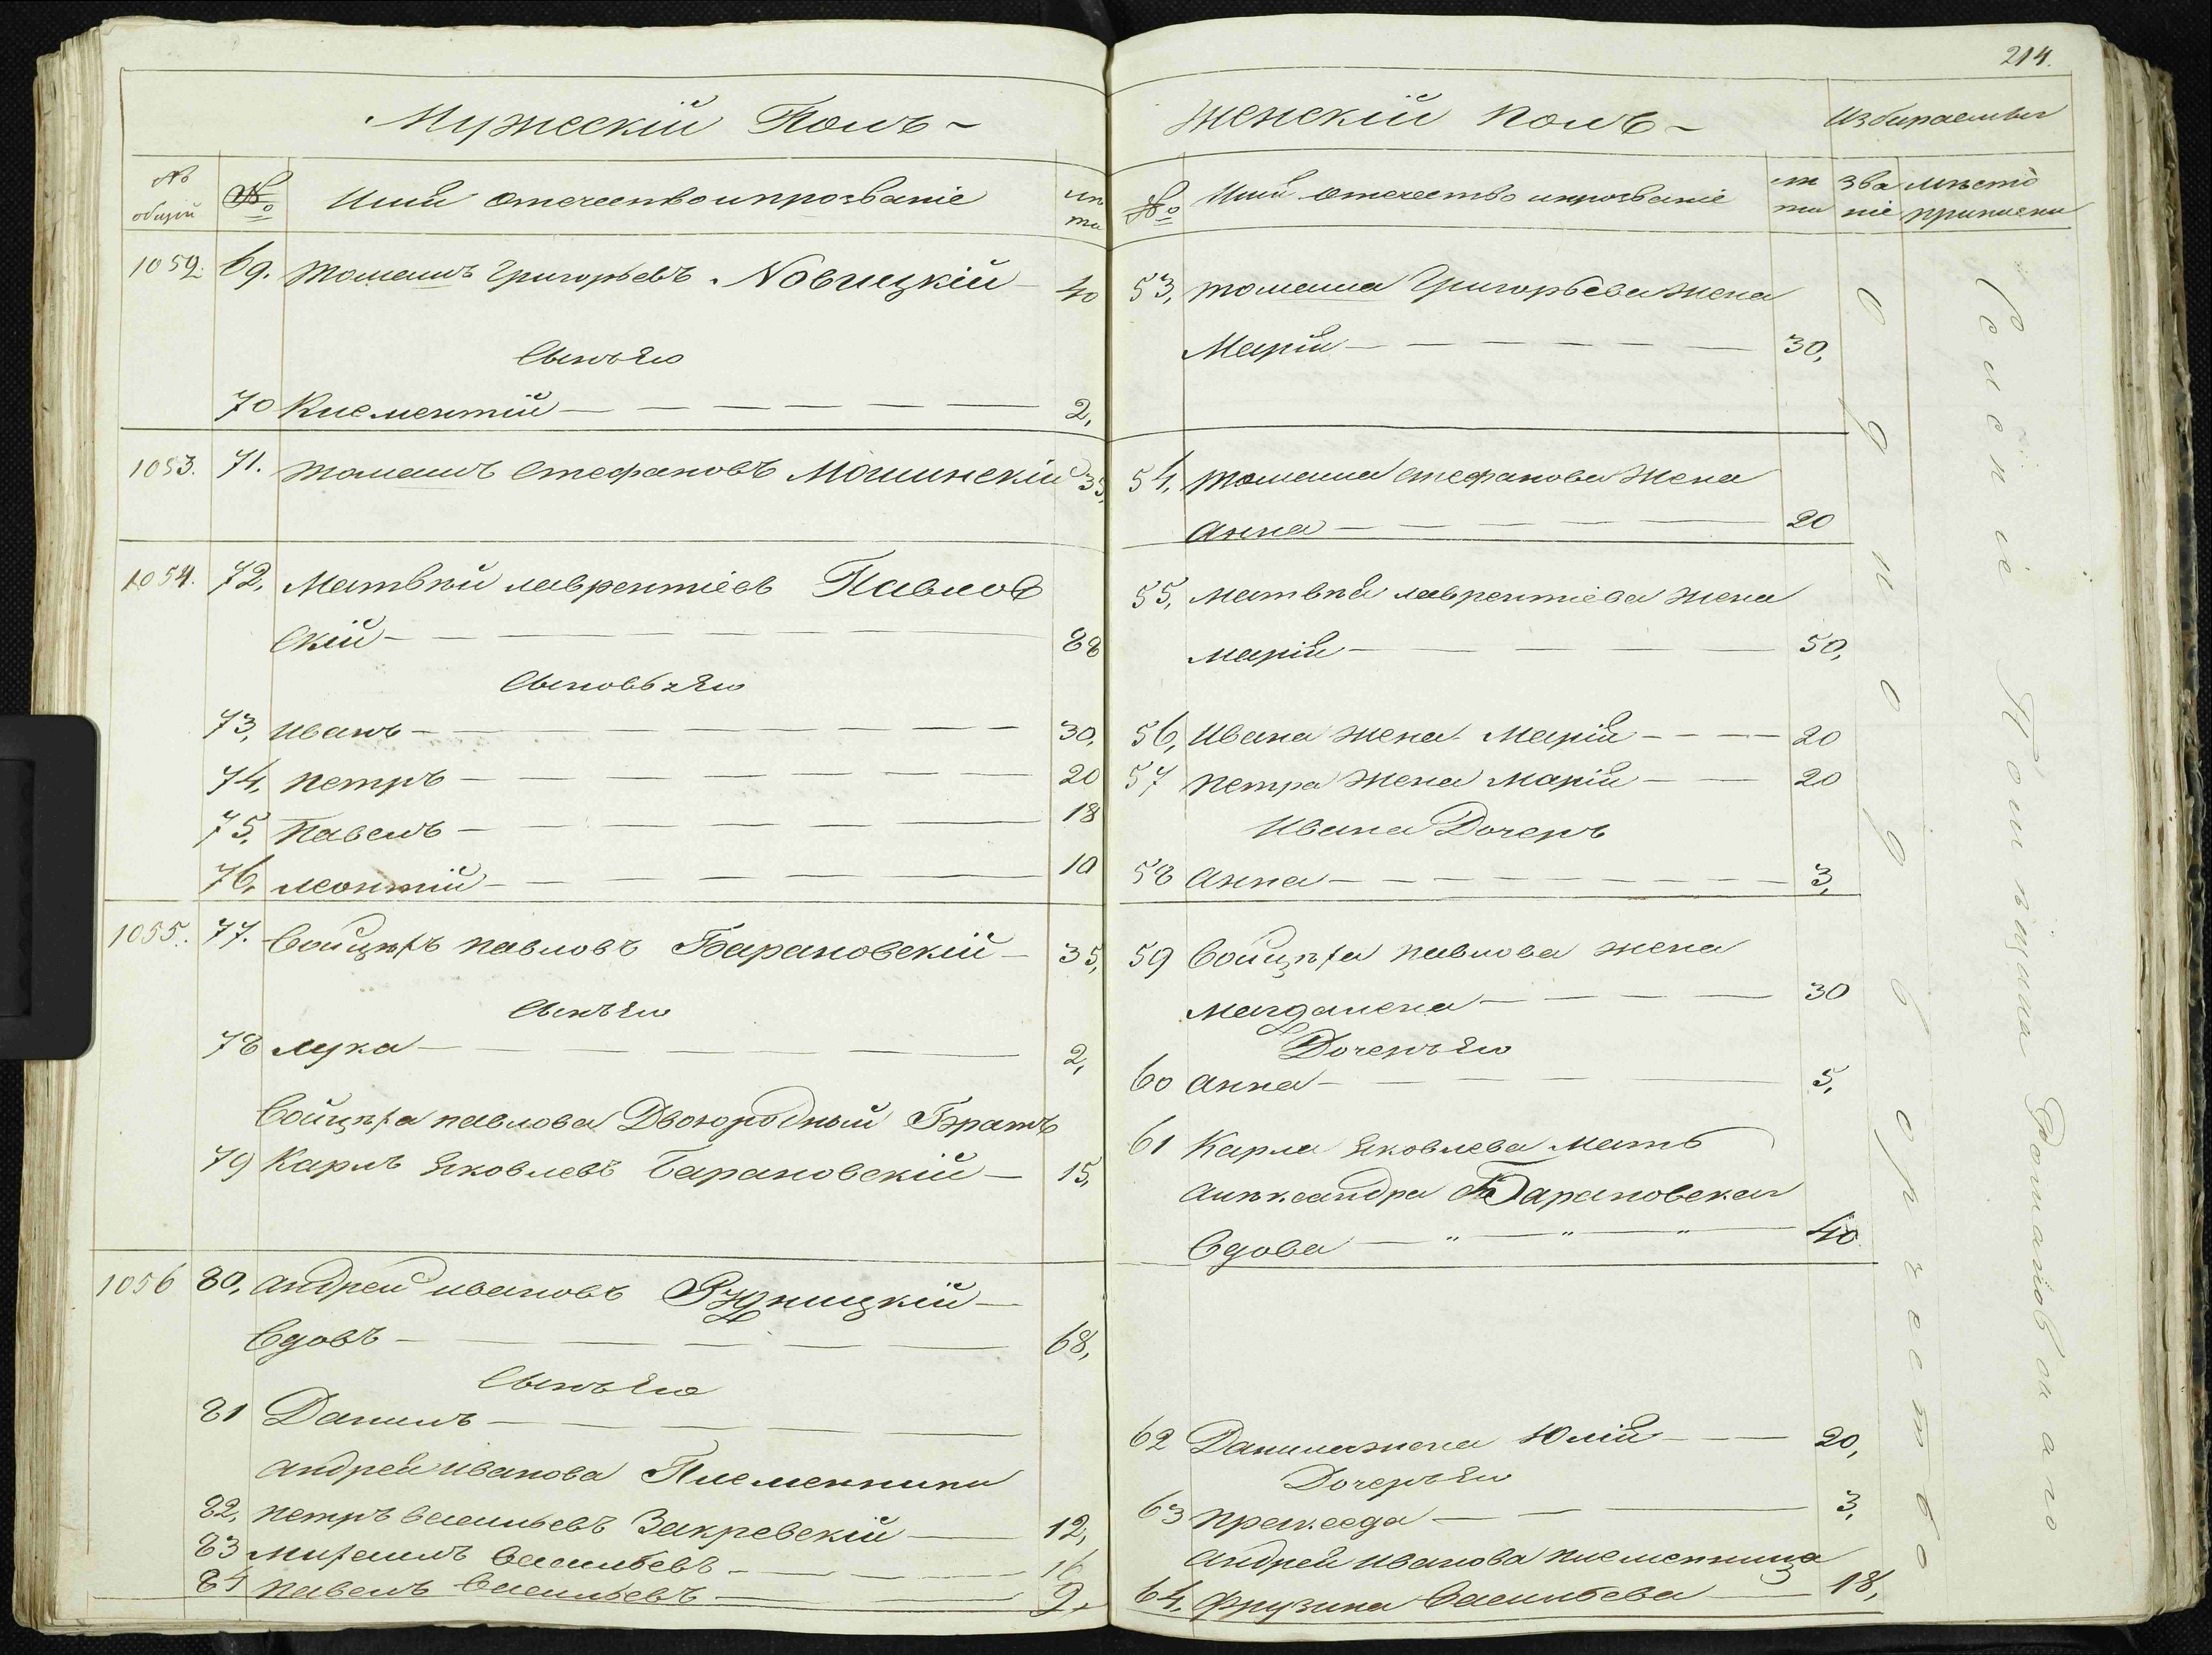 214.
Мужескій Полъ
№ общій
№
Имя отечество и прозваніе
лѣта
1052. 69. Томашъ Григорьевъ Новицкій 40
Сынъ Его
70 Клементій 2,
1053. 71. Томашъ Стефановъ Мошинскій 35,
1054. 72, Матвѣй Лаврентіевъ Павлов
скій 88
Сыновья Его
73, Иванъ 30,
74, Петръ 20
75, Павелъ 18
76, Леонтій 10
1055. 77. Войцѣхъ Павловъ Барановскій 35,
Сынъ Его
78 Лука 2,
Войцѣха Павлова Двоюродный Братъ
79 Карлъ Яковлевъ Барановскій 15,
1056 80, Андрей Ивановъ Рудницкій
Вдовъ 68,
Сынъ Его
81 Данилъ
Андрея Иванова Племенники
82, Петръ Васильевъ Закревскій 12,
83 Михаилъ Васильевъ
84 Павелъ Васильевъ 9.
Женскій Полъ
Избираемыя
№
Имя Отечество и прозваніе
лѣта
званіе
мѣсто приписки
53, Томаша Григорьева Жена
Марія 30,
54, Томаша Стефанова Жена
Анна 20
55, Матвѣя Лаврентіева Жена
Марія 50,
56, Ивана Жена Марія 20
57 Петра Жена Марія 20
Ивана Дочерь
58 Анна 3,
59 Войцѣха Павлова Жена
Магдалена 30
Дочерь Его
60 Анна 5,
61 Карла Яковлева Мать
Алѣксандра Барановская
Вдова 40
62 Данила жена Юлія 20,
Дочерь Его
63 Пракседа 3,
Андрея Иванова племенница
64, Фрузина Васильева 18,
Однодворчество
Селеніе Помѣщика